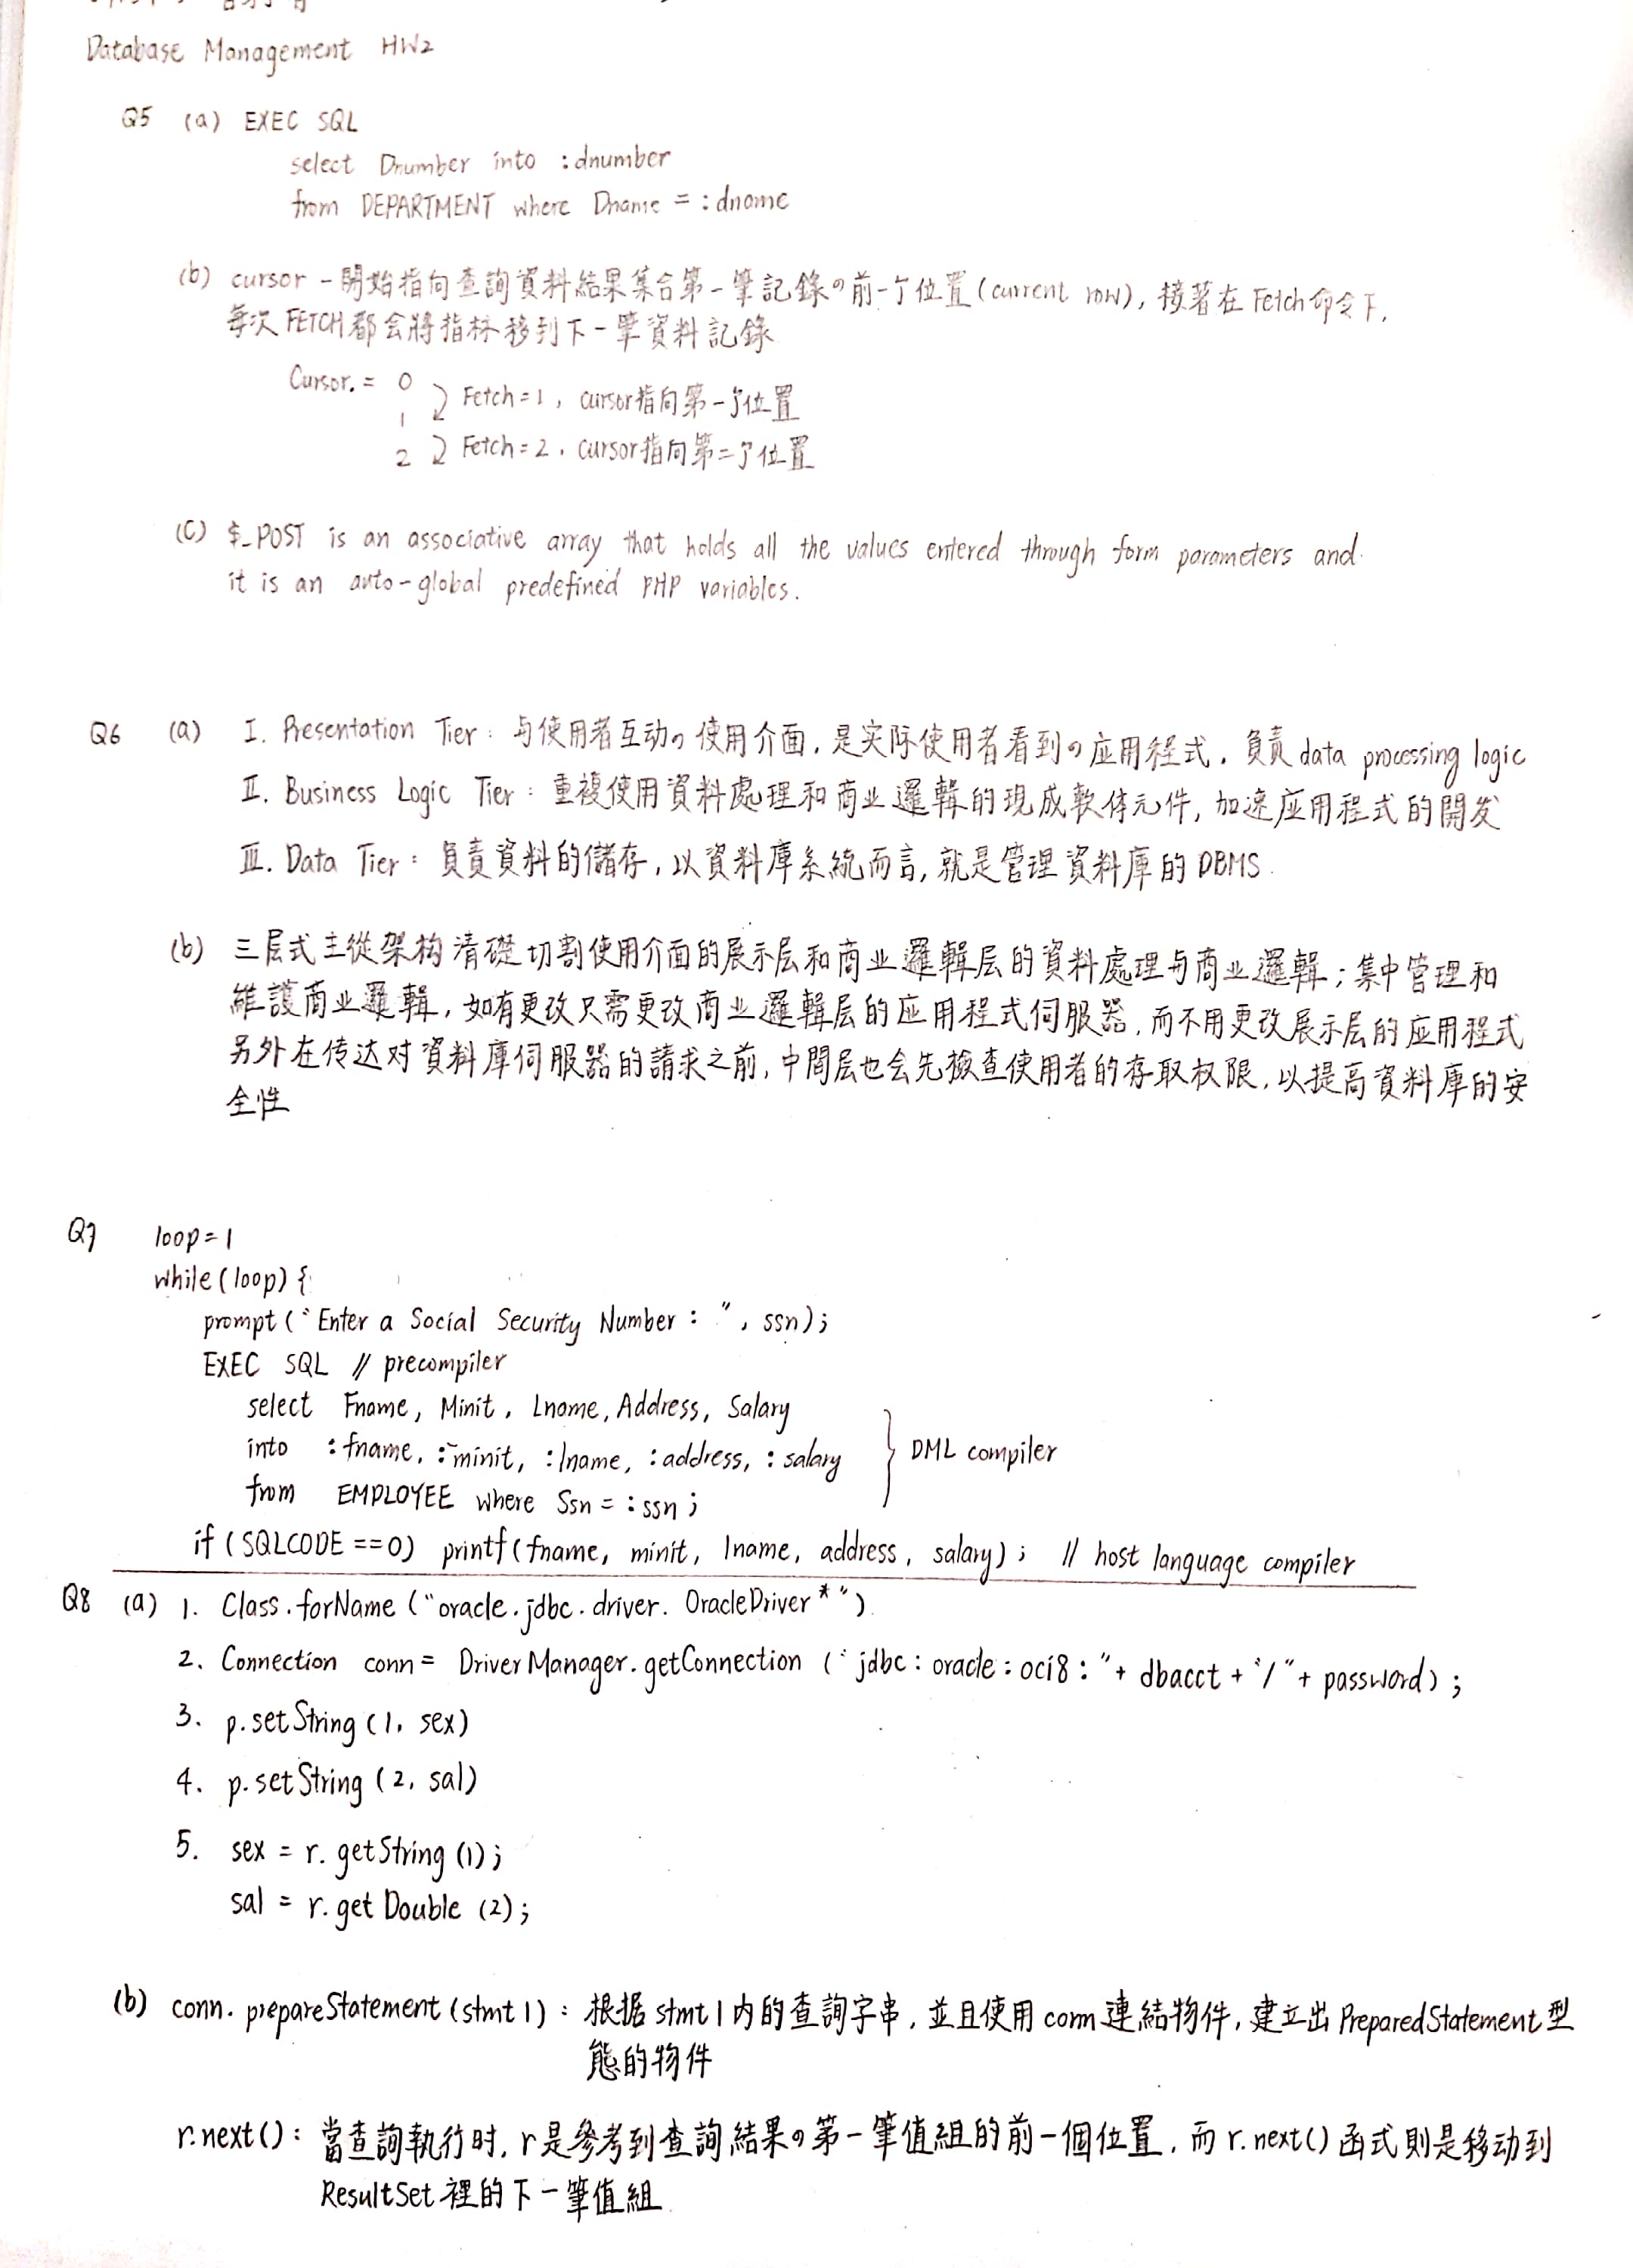 Database Management HW2
Q5 (a) EXEC SQL
select Dnumber into :dnumber
from DEPARTMENT where Dname = :dname
(b) cursor 一開始指向查詢資料結果集合第一筆記錄の前一个位置(current row), 接著在Fetch命令下,
每次FETCH都会將指标移到下一筆資料記錄
Cursor. = 0
Fetch=1, cursor指向第一个位置
1
Fetch=2, cursor指向第二个位置
2
(C) $_POST is an associative array that holds all the values entered through form parameters and
it is an auto-global predefined PHP variables.
Q6 (a) I. Presentation Tier: 与使用者互动の使用介面, 是实际使用者看到の应用程式. 負責data processing logic
II. Business Logic Tier: 重複使用資料處理和商业邏輯的現成軟体元件, 加速应用程式的開发
III. Data Tier: 負責資料的儲存, 以資料庫系統而言, 就是管理資料庫的DBMS.
(b) 三层式主從架构清礎切割使用介面的展示层和商业邏輯层的資料處理与商业邏輯; 集中管理和
維護商业邏輯, 如有更改只需更改商业邏輯层的应用程式伺服器, 而不用更改展示层的应用程式
另外在传达对資料庫伺服器的請求之前, 中間层也会先檢查使用者的存取权限, 以提高資料庫的安
全性
Q7 loop=1
while(loop){
prompt("Enter a Social Security Number: ", ssn);
EXEC SQL // precompiler
select Fname, Minit, Lname, Address, Salary
into :fname, :minit, :lname, :address, :salary } DML compiler
from EMPLOYEE where Ssn = :ssn;
if (SQLCODE ==0) printf(fname, minit, lname, address, salary); // host language compiler
Q8 (a) 1. Class.forName ("oracle.jdbc.driver. OracleDriver*")
2. Connection conn = DriverManager.getConnection ("jdbc:oracle:oci8:"+ dbacct + "/"+ password);
3. p.setString(1, sex)
4. p.setString(2, sal)
5. sex = r.getString(1);
sal = r.getDouble (2);
(b) conn.prepareStatement(stmt1): 根据stmt1内的查詢字串, 並且使用conn連結物件, 建立出PreparedStatement型
態的物件
r.next(): 當查詢執行时, r是參考到查詢結果の第一筆值組的前一個位置, 而r.next()函式則是移动到
ResultSet裡的下一筆值組